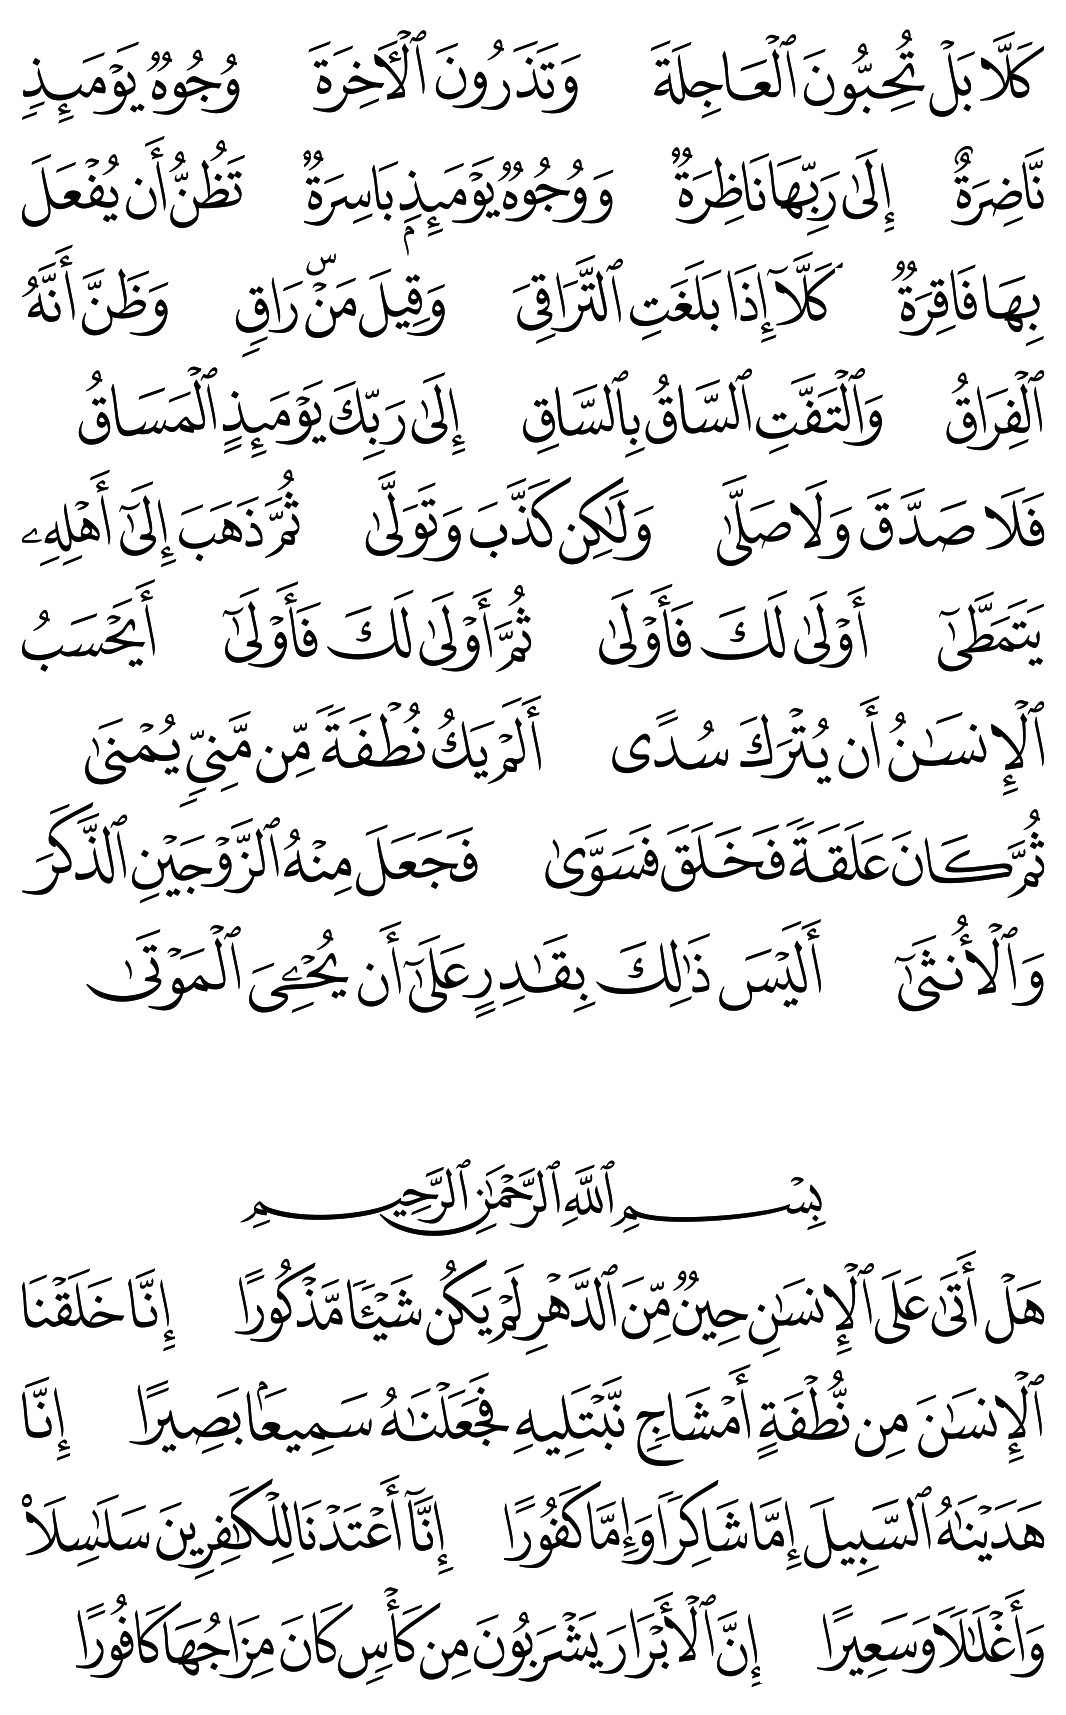 كَلَّا بَلْ تُحِبُّونَ ٱلْعَاجِلَةَ وَتَذَرُونَ ٱلْـَٔاخِرَةَ وُجُوهٌ يَوْمَئِذٍ
نَّاضِرَةٌ إِلَىٰ رَبِّهَا نَاظِرَةٌ وَوُجُوهٌ يَوْمَئِذٍۭ بَاسِرَةٌ تَظُنُّ أَن يُفْعَلَ
بِهَا فَاقِرَةٌ كَلَّآ إِذَا بَلَغَتِ ٱلتَّرَاقِىَ وَقِيلَ مَنْ ۜ رَاقٍ وَظَنَّ أَنَّهُ
ٱلْفِرَاقُ وَٱلْتَفَّتِ ٱلسَّاقُ بِٱلسَّاقِ إِلَىٰ رَبِّكَ يَوْمَئِذٍ ٱلْمَسَاقُ
فَلَا صَدَّقَ وَلَا صَلَّىٰ وَلَٰكِن كَذَّبَ وَتَوَلَّىٰ ثُمَّ ذَهَبَ إِلَىٰٓ أَهْلِهِۦ
يَتَمَطَّىٰٓ أَوْلَىٰ لَكَ فَأَوْلَىٰ ثُمَّ أَوْلَىٰ لَكَ فَأَوْلَىٰٓ أَيَحْسَبُ
ٱلْإِنسَٰنُ أَن يُتْرَكَ سُدًى أَلَمْ يَكُ نُطْفَةً مِّن مَّنِىٍّ يُمْنَىٰ
ثُمَّ كَانَ عَلَقَةً فَخَلَقَ فَسَوَّىٰ فَجَعَلَ مِنْهُ ٱلزَّوْجَيْنِ ٱلذَّكَرَ
وَٱلْأُنثَىٰٓ أَلَيْسَ ذَٰلِكَ بِقَٰدِرٍ عَلَىٰٓ أَن يُحْـِۧىَ ٱلْمَوْتَىٰ
بِسْمِ ٱللَّهِ ٱلرَّحْمَٰنِ ٱلرَّحِيمِ
هَلْ أَتَىٰ عَلَى ٱلْإِنسَٰنِ حِينٌ مِّنَ ٱلدَّهْرِ لَمْ يَكُن شَيْـًٔا مَّذْكُورًا إِنَّا خَلَقْنَا
ٱلْإِنسَٰنَ مِن نُّطْفَةٍ أَمْشَاجٍ نَّبْتَلِيهِ فَجَعَلْنَٰهُ سَمِيعًۢا بَصِيرًا إِنَّا
هَدَيْنَٰهُ ٱلسَّبِيلَ إِمَّا شَاكِرًا وَإِمَّا كَفُورًا إِنَّآ أَعْتَدْنَا لِلْكَٰفِرِينَ سَلَٰسِلَا۟
وَأَغْلَٰلًا وَسَعِيرًا إِنَّ ٱلْأَبْرَارَ يَشْرَبُونَ مِن كَأْسٍ كَانَ مِزَاجُهَا كَافُورًا